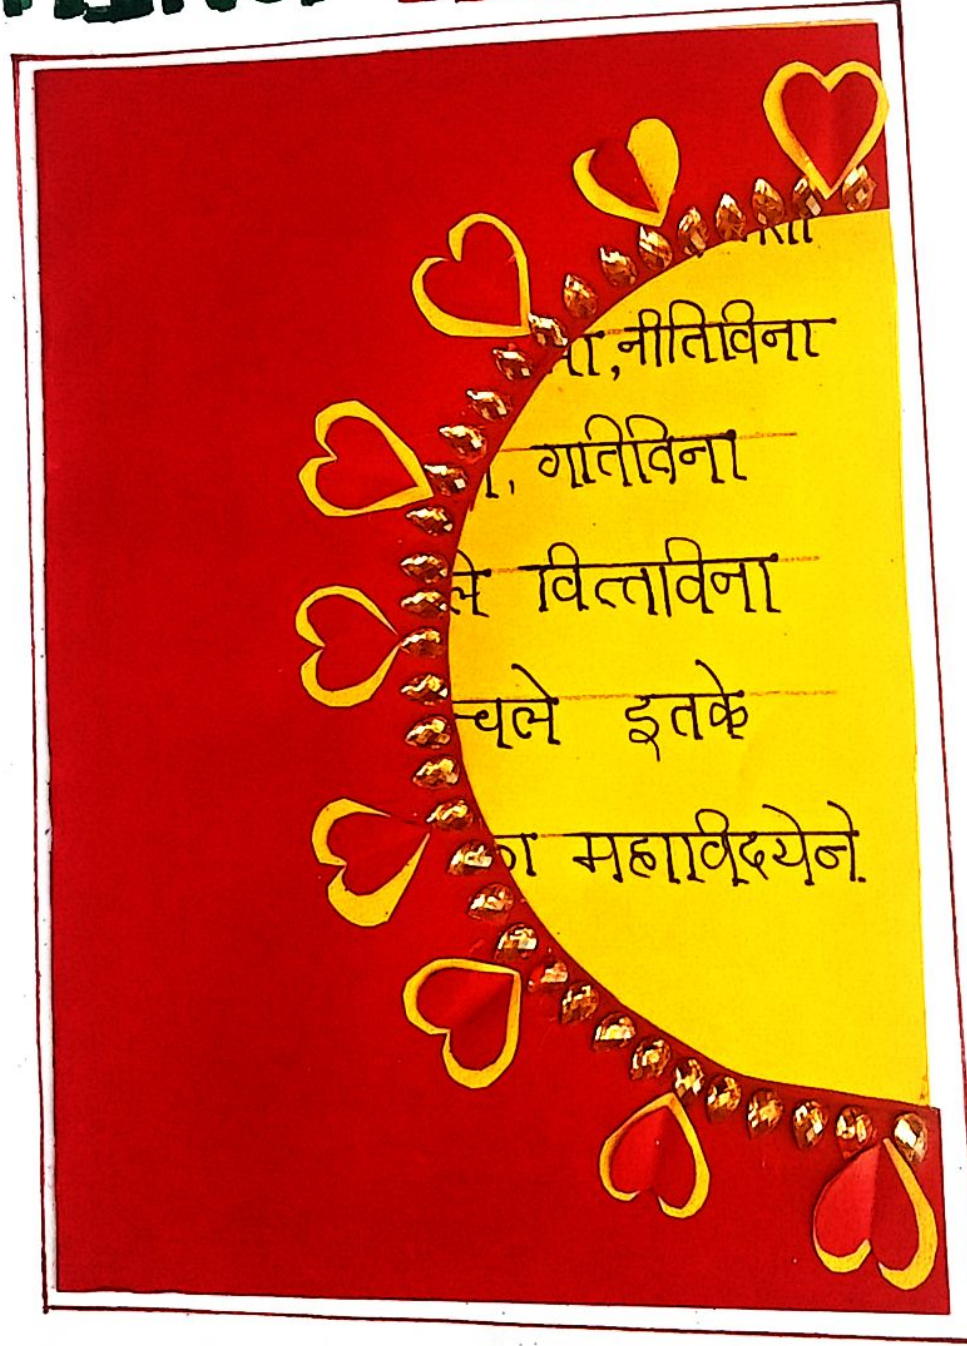 नीतिविना
गतिविना
वित्तविना
चले इतके
महाविद्येने.